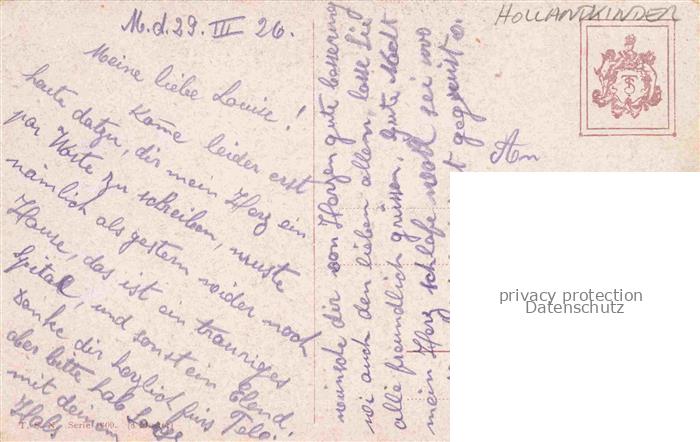 HOLLANDKINDER
M. d. 29. III 26.
Meine liebe Louise!
Kome leider erst
heute datzu, dir mein Herz ein
par Worte zu schreiben, muste
nämlich als gestern wider nach
Hause, das ist ein trauriges
Spital, und sonst ein Elend.
Danke dir herzlich fürs Tele.
aber bitte hab Sorge
mit deinem
Hals
wünsche dir von Herzen gute besserung
wi auch den lieben allem, lasse Sie
alle freundlich grüssen, Gute Nacht
mein Herz schlafe wohl sei 1000
gegrüsst
An
T. S. N. Serie
privacy protection
Datenschutz